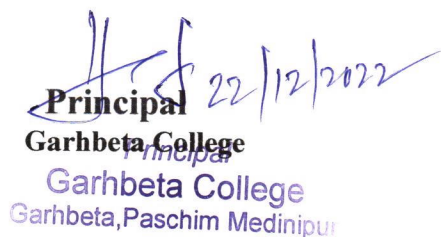 22/12/2022
Principal
Garhbeta College
Principal
Garhbeta College
Garhbeta,Paschim Medinipur